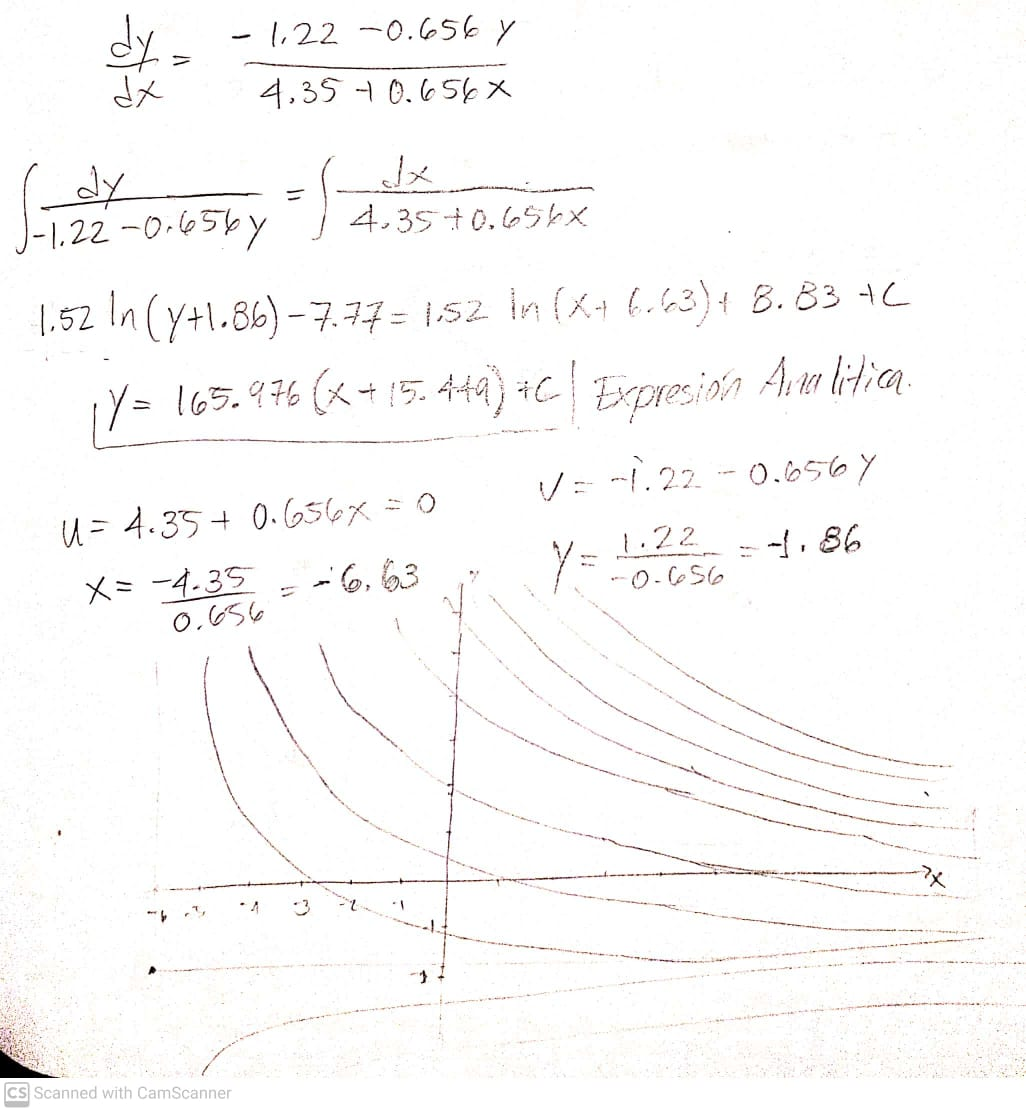 dy/dx = (-1.22 -0.656 y)/(4.35 + 0.656x)
∫ dy/(-1.22 -0.656y) = ∫ dx/(4.35+0.656x)
1.52 ln(y+1.86) -7.77 = 1.52 ln(x+6.63) + 8.83 +C
y = 165.976 (x + 15.449) +C | Expresión Analítica.
u = 4.35 + 0.656x = 0
v = -1.22 - 0.656 y
x = -4.35/0.656 = -6.63
y = 1.22/-0.656 = -1.86
x
-4 -3 -2 -1
-1
CS Scanned with CamScanner